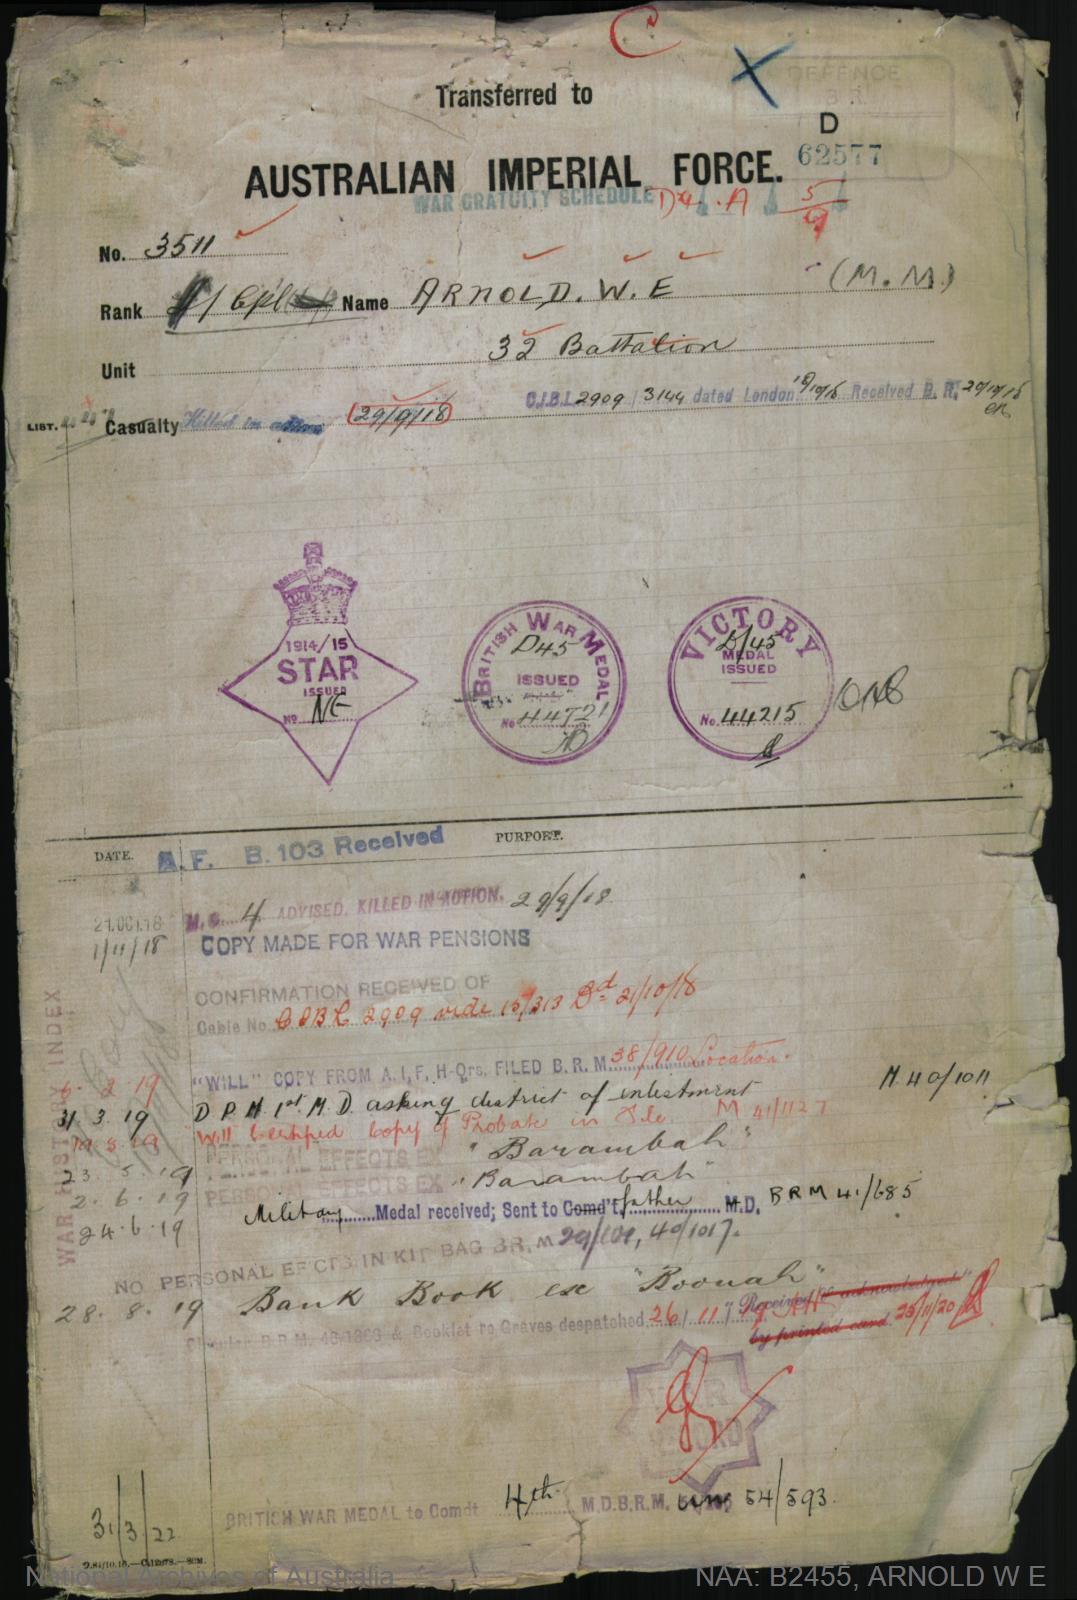 C
X
DEFENCE
Transferred to
D
62577
AUSTRALIAN IMPERIAL FORCE.
WAR GRATUITY SCHEDULE
No. 3511
Rank Cpl Name ARNOLD. W. E (M.M.)
Unit 32 Battalion
C.I.B.L. 2909 / 3144 dated London Received B. R.
LIST. Casualty Killed in action 29/9/18
1914/15
STAR
ISSUED
No NE
BRITISH WAR MEDAL
D45
ISSUED
No 44721
VICTORY
D/45
MEDAL
ISSUED
No. 44215
DATE. A.F. B.103 Received PURPORT.
21.OCT.18 4 ADVISED. KILLED IN ACTION. 29/9/18
1/11/18 COPY MADE FOR WAR PENSIONS
CONFIRMATION RECEIVED OF
Cable No. CIBL 2909 vide 15/313 Dd 21/10/18
WAR HISTORY INDEX
6. 2. 19 "WILL" COPY FROM A.I.F. H-Qrs. FILED B.R.M. 38/910 Location.
31. 3. 19 D P M 1st M. D. asking district of enlistment M 40/1011
Will Certified Copy of Probate in File M 41/1127
23. 5. 19 PERSONAL EFFECTS EX "Barambah"
2. 6. 19 PERSONAL EFFECTS EX "Barambah"
24.6.19 Military Medal received; Sent to Comd't father M.D. BRM 41/685
NO PERSONAL EFECTS IN KIT BAG BR. M
28. 8. 19 Bank Book ex "Boonah"
Circular B.R.M. & Booklet re Graves despatched 26/11/19 Receipt acknowledged
by printed card 25/11/20
31/3/22 BRITISH WAR MEDAL to Comdt 4th M.D.B.R.M. 54/593.
National Archives of Australia NAA: B2455, ARNOLD W E